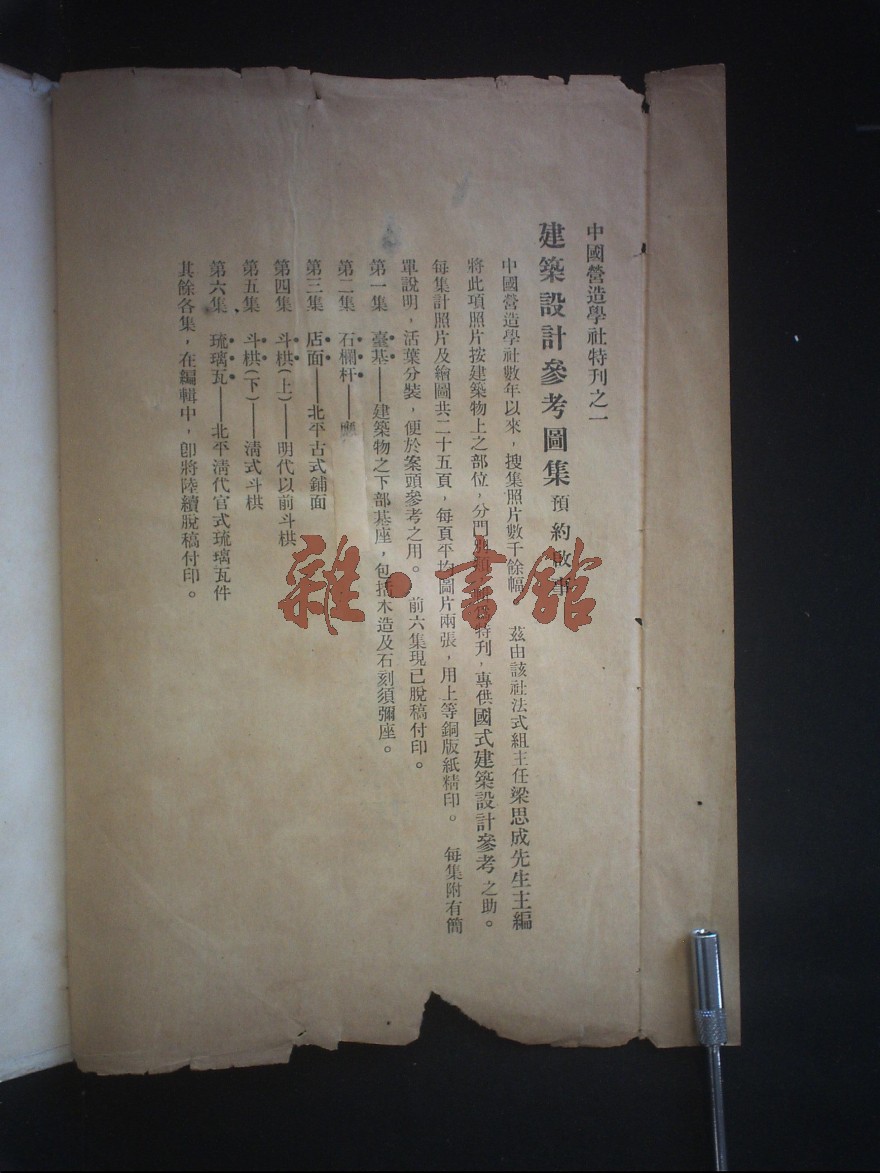 中國營造學社特刊之一
建築設計參考圖集 預約啟事
中國營造學社數年以來，搜集照片數千餘幅 茲由該社法式組主任梁思成先生主編
將此項照片按建築物上之部位，分門 特刊，專供國式建築設計參考之助。
每集計照片及繪圖共二十五頁，每頁平均圖片兩張，用上等銅版紙精印。 每集附有簡
單說明，活葉分裝，便於案頭參考之用。 前六集現已脫稿付印。
第一集 臺基——建築物之下部基座，包括木造及石刻須彌座。
第二集 石欄杆——
第三集 店面——北平古式鋪面
第四集 斗栱(上)——明代以前斗栱
第五集 斗栱(下)——清式斗栱
第六集 琉璃瓦——北平清代官式琉璃瓦件
其餘各集，在編輯中，卽將陸續脫稿付印。
雜·書館